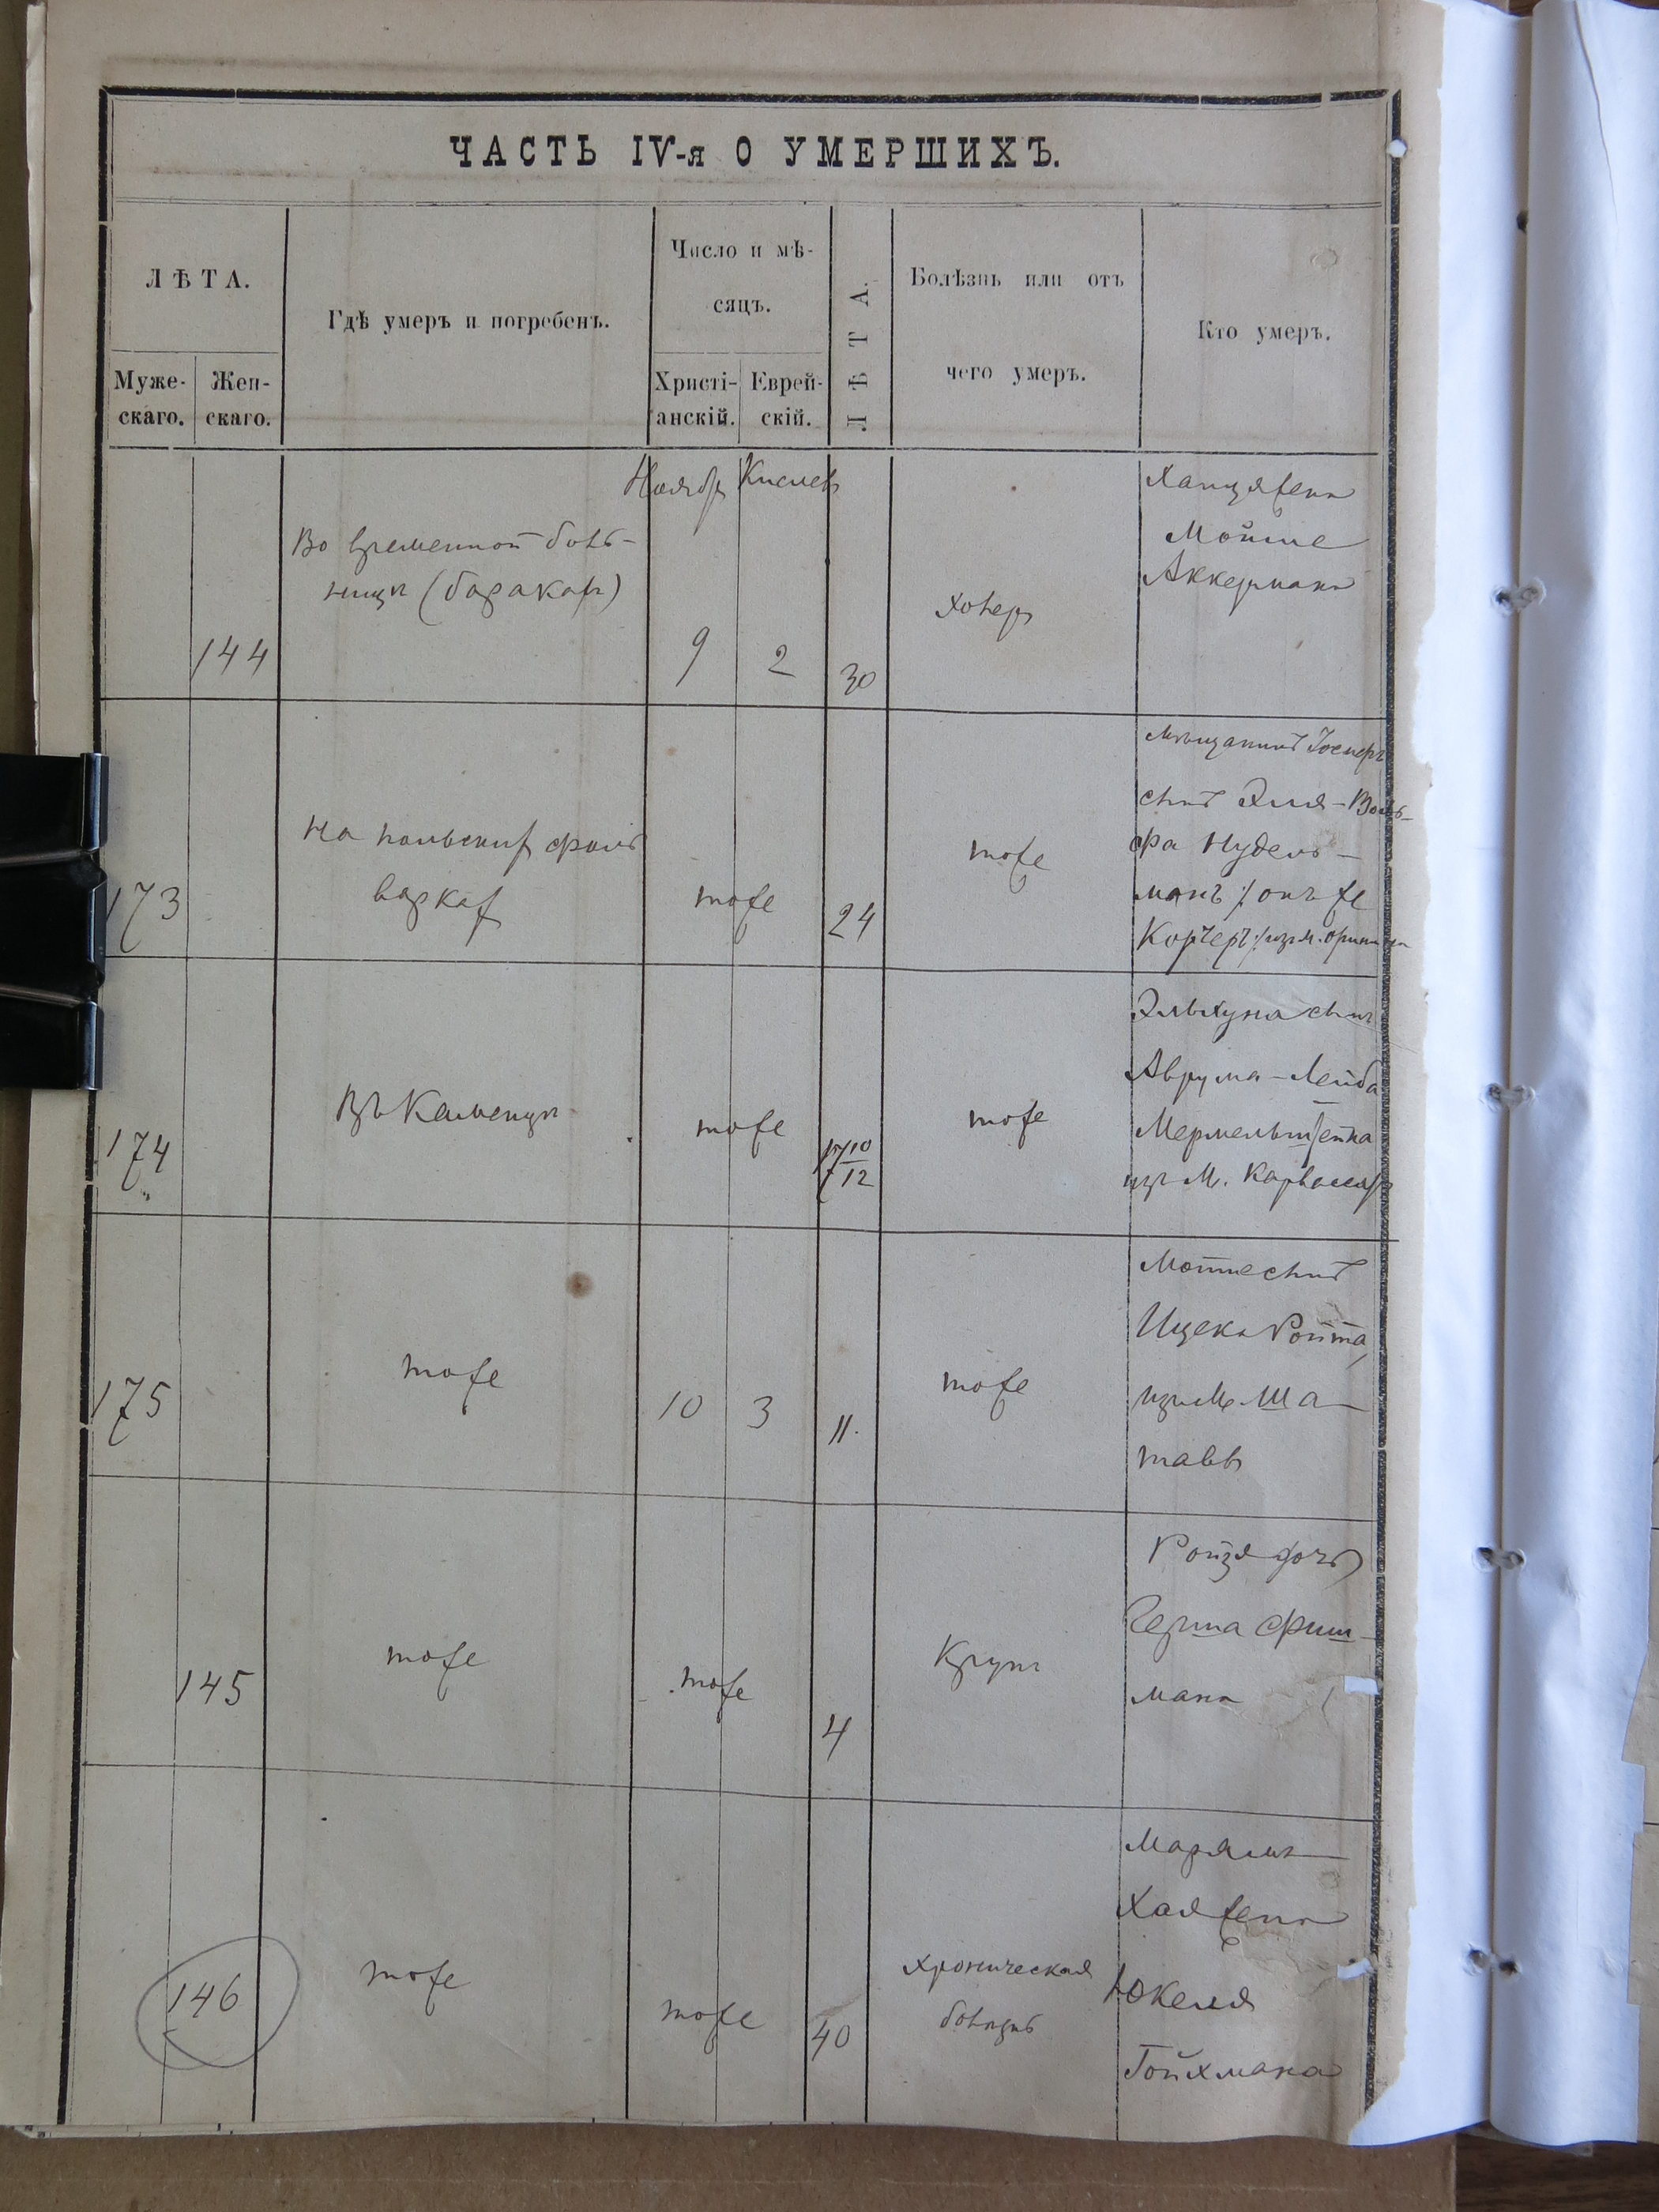 ЧАСТЬ IV-я О УМЕРШИХЪ.
ЛѢТА.
Муже-
скаго.
Жен-
скаго.
Гдѣ умеръ и погребенъ.
Число и мѣ-
сяцъ.
Христі-
анскій.
Еврей-
скій.
ЛѢТА.
Болѣзнь или отъ
чего умеръ.
Кто умеръ.
144
Во временной боль-
ницѣ (баракахъ)
Ноябрь
9
Кислевъ
2
30
Холера
жена
Мойше
Аккермана
173
На польскихъ фоль
варкахъ
тоже
24
тоже
Мѣщанинъ
сынъ Эля-Воль-
фа Нудель-
манъ /: онъ же
Корчеръ :/ изъ м.
174
Въ Каменцѣ
тоже
10
12
тоже
сынъ
Аврума-Лейба
Мермельштейна
изъ М. Карвасаръ
175
тоже
10
3
11.
тоже
Мотте сынъ
Ицека Ройта,
изъ М. Ша-
тавы
145
тоже
тоже
4
Крупъ
Ройзя дочь
Герша Фиш-
мана
146
тоже
тоже
40
хроническая
болѣзнь
Марьямъ
Хая жена
Юкеля
Гойхмана